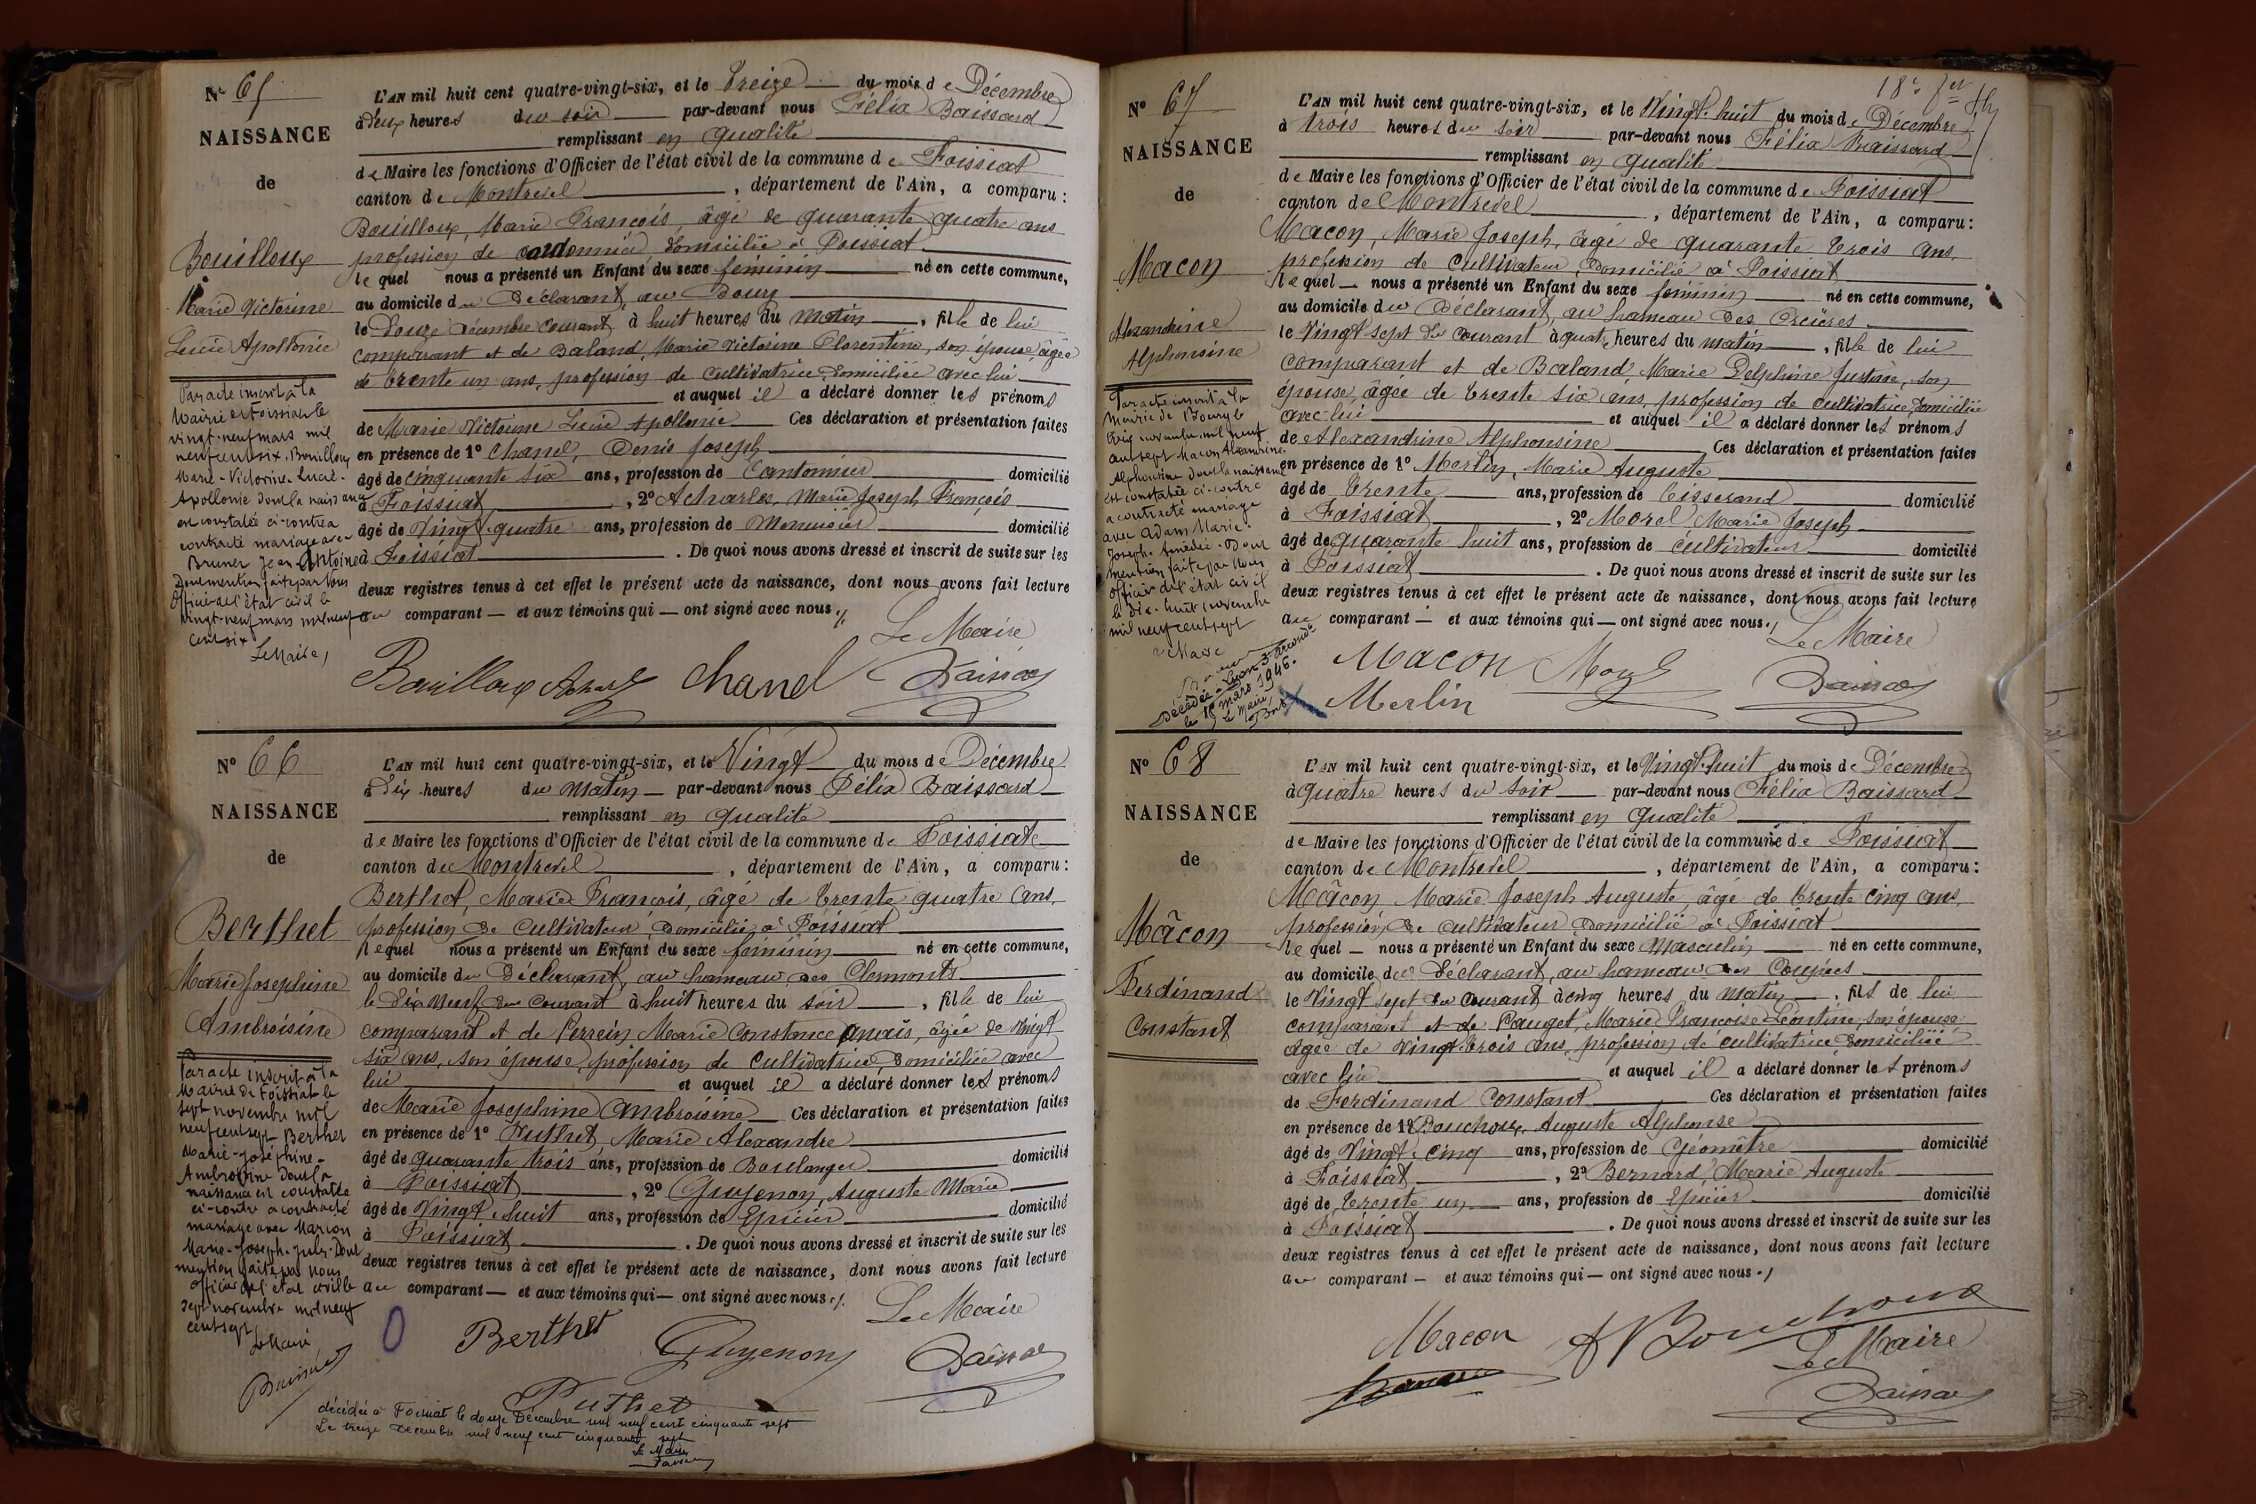 N° 65
NAISSANCE
de
Bouilloux
Marie Victorine
Lucie Apollonie
Par acte inscrit à la
Mairie de Foissiat le
vingt-neuf mars mil
neuf cent six, Bouilloux
Marie-Victorine-Lucie-
Apollonie dont la naissance
est constatée ci-contre a
contracté mariage avec
Brunet Jean Antoine
Dont mention faite par Nous
Officier de l'état civil le
vingt-neuf mars mil neuf
cent six
Le Maire,
L'AN mil huit cent quatre-vingt-six, et le treize du mois de Décembre
à deux heures du soir par-devant nous Félix Baissard
remplissant en qualité
de Maire les fonctions d'Officier de l'état civil de la commune de Foissiat
canton de Montrevel, département de l'Ain, a comparu :
Bouilloux, Marie François, âgé de quarante quatre ans
profession de cordonnier, domicilié à Foissiat
lequel nous a présenté un Enfant du sexe féminin né en cette commune,
au domicile du Déclarant, au Bourg
le Douze Décembre courant à huit heures du matin, fille de lui
comparant et de Baland, Marie Victorine Florentine, son épouse, âgée
de trente un ans, profession de cultivatrice, domiciliée avec lui
et auquel il a déclaré donner les prénoms
de Marie Victorine Lucie Apollonie Ces déclaration et présentation faites
en présence de 1° Chanel, Denis Joseph
âgé de cinquante six ans, profession de Cantonnier domicilié
à Foissiat, 2° Acharles, Marie Joseph François
âgé de Vingt quatre ans, profession de Menuisier domicilié
à Foissiat. De quoi nous avons dressé et inscrit de suite sur les
deux registres tenus à cet effet le présent acte de naissance, dont nous avons fait lecture
au comparant et aux témoins qui ont signé avec nous
Le Maire
Bouilloux Chanel
N° 66
NAISSANCE
de
Berthet
Marie Josephine
Ambroisine
Par acte inscrit à la
Mairie de Foissiat le
sept novembre mil
neuf cent sept Berthet
Marie-Joséphine-
Ambroisine dont la
naissance est constatée
ci-contre a contracté
mariage avec Marion
Marie-Joseph-Jules. Dont
mention faite par Nous
officier de l'état civil le
sept novembre mil neuf
cent sept
Le Maire
L'AN mil huit cent quatre-vingt-six, et le Vingt du mois de Décembre
à dix heures du matin par-devant nous Félix Baissard
remplissant en qualité
de Maire les fonctions d'Officier de l'état civil de la commune de Foissiat
canton de Montrevel, département de l'Ain, a comparu :
Berthet, Marie François, âgé de trente quatre ans,
profession de Cultivateur, domicilié à Foissiat
lequel nous a présenté un Enfant du sexe féminin né en cette commune,
au domicile du Déclarant, au hameau des Clermonts
le Dix neuf du courant à huit heures du soir, fille de lui
comparant et de Perrein, Marie Constance Anaïs, âgée de vingt
six ans, son épouse, profession de cultivatrice domiciliée avec
lui et auquel il a déclaré donner les prénoms
de Marie Josephine Ambroisine Ces déclaration et présentation faites
en présence de 1° Puthet, Marie Alexandre
âgé de quarante trois ans, profession de Boulanger domicilié
à Foissiat, 2° Guyenon, Auguste Marie
âgé de Vingt huit ans, profession de Epicier domicilié
à Foissiat. De quoi nous avons dressé et inscrit de suite sur les
deux registres tenus à cet effet le présent acte de naissance, dont nous avons fait lecture
au comparant et aux témoins qui ont signé avec nous
Le Maire
Berthet Guyenon
Puthet
décédée à Foissiat le douze Décembre mil neuf cent cinquante sept
Le treize Décembre mil neuf cent cinquante sept
Le Maire
18e fer
N° 67
NAISSANCE
de
Macon
Alexandrine
Alphonsine
Par acte inscrit à la
Mairie de Bourg le
novembre mil neuf
cent sept Macon Alexandrine
Alphonsine dont la naissance
est constatée ci-contre
a contracté mariage
avec Adam Marie
Joseph Amédée. Dont
mention faite par Nous
officier de l'état civil
le dix-huit novembre
mil neuf cent sept
Le Maire
Décédée à Lyon 3e arrond
le 18 mars 1946.
Le Maire,
L'AN mil huit cent quatre-vingt-six, et le Vingt-huit du mois de Décembre
à trois heures du soir par-devant nous Félix Baissard
remplissant en qualité
de Maire les fonctions d'Officier de l'état civil de la commune de Foissiat
canton de Montrevel, département de l'Ain, a comparu :
Macon, Marie Joseph, âgé de quarante trois ans,
profession de Cultivateur, Domicilié à Foissiat
lequel nous a présenté un Enfant du sexe féminin né en cette commune,
au domicile du Déclarant, au hameau des
le Vingt sept du courant à quatre heures du matin, fille de lui
comparant et de Baland, Marie Delphine Justine, son
épouse, âgée de trente six ans, profession de cultivatrice, domiciliée
avec lui et auquel il a déclaré donner les prénoms
de Alexandrine Alphonsine Ces déclaration et présentation faites
en présence de 1° Merlin, Marie Auguste
âgé de trente ans, profession de tisserand domicilié
à Foissiat, 2° Morel Marie Joseph
âgé de quarante huit ans, profession de cultivateur domicilié
à Foissiat. De quoi nous avons dressé et inscrit de suite sur les
deux registres tenus à cet effet le présent acte de naissance, dont nous avons fait lecture
au comparant et aux témoins qui ont signé avec nous.
Le Maire
Macon Morel
Merlin
N° 68
NAISSANCE
de
Mâcon
Ferdinand
Constant
L'AN mil huit cent quatre-vingt-six, et le Vingt-huit du mois de Décembre
à quatre heures du soir par-devant nous Félix Baissard
remplissant en qualité
de Maire les fonctions d'Officier de l'état civil de la commune de Foissiat
canton de Montrevel, département de l'Ain, a comparu :
Mâcon Marie Joseph Auguste, âgé de trente cinq ans,
profession de cultivateur domicilié à Foissiat
lequel nous a présenté un Enfant du sexe masculin né en cette commune,
au domicile du Déclarant, au hameau des
le Vingt sept du courant à cinq heures du matin, fils de lui
comparant et de Pauget, Marie Françoise Léontine, son épouse
âgée de vingt trois ans, profession de cultivatrice domiciliée
avec lui et auquel il a déclaré donner les prénoms
de Ferdinand Constant Ces déclaration et présentation faites
en présence de 1° Bouchoux, Auguste Alphonse
âgé de Vingt cinq ans, profession de Géomètre domicilié
à Foissiat, 2° Bernard, Marie Auguste
âgé de trente un ans, profession de Epicier domicilié
à Foissiat. De quoi nous avons dressé et inscrit de suite sur les
deux registres tenus à cet effet le présent acte de naissance, dont nous avons fait lecture
au comparant et aux témoins qui ont signé avec nous.
Macon A Bouchoux
Le Maire